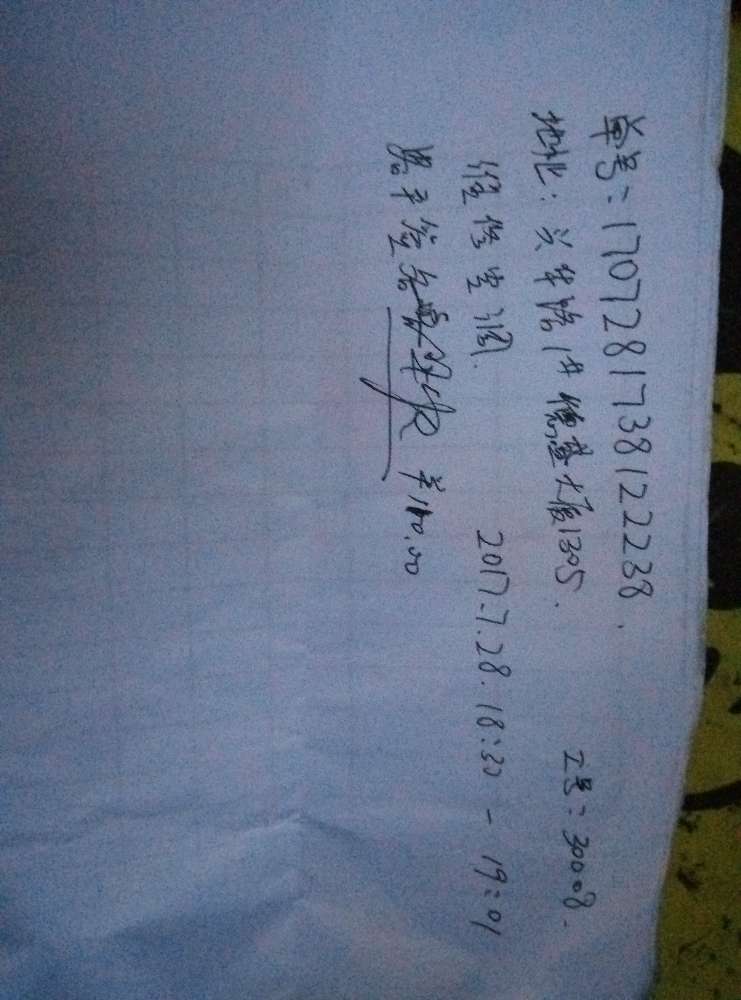 单号:170728173812238.
地址:兴华路1号德益大厦1305. 工号:30008.
维修空调. 2017.7.28.18:30-19:01
客户签名 ¥100.00